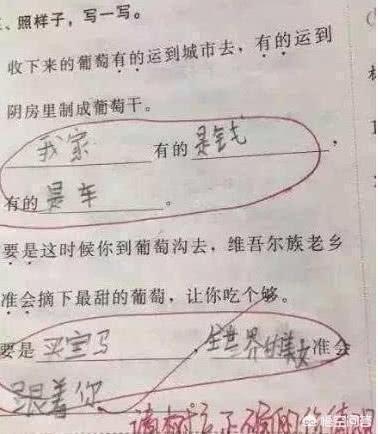 、照样子，写一写。
收下来的葡萄有的运到城市去，有的运到
阴房里制成葡萄干。
我家有的是钱，
有的是车。
要是这时候你到葡萄沟去，维吾尔族老乡
准会摘下最甜的葡萄，让你吃个够。
要是买宝马，全世界的美女准会
跟着你
请树立正确的价值观
悟空问答